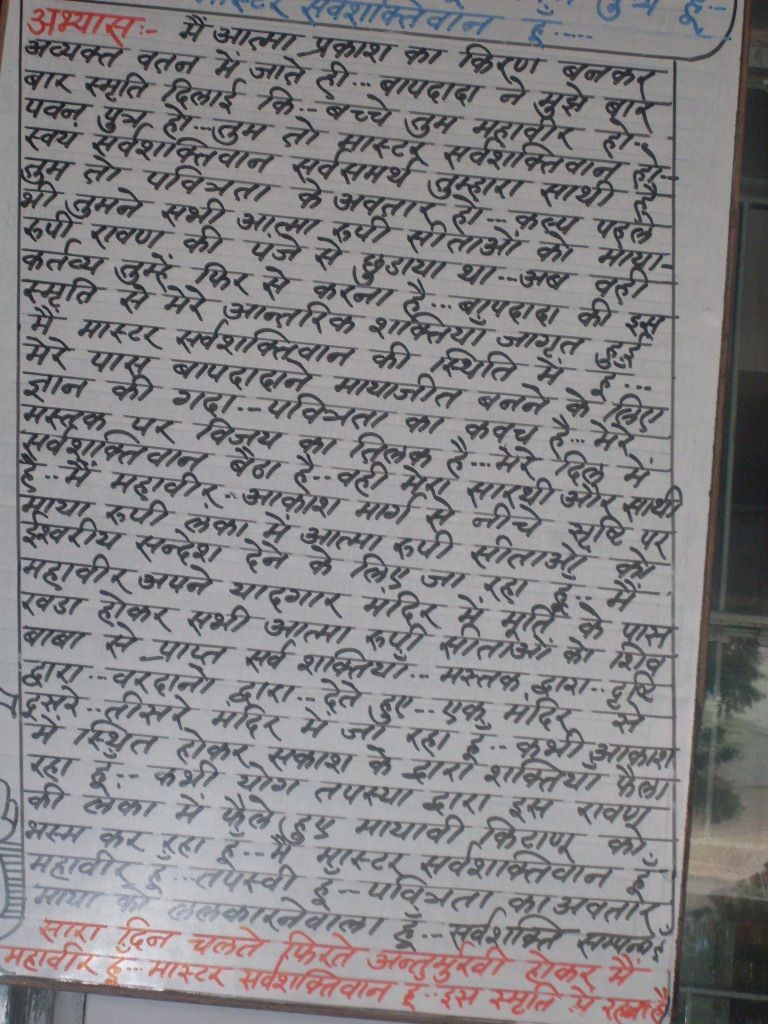 मास्टर सर्वशक्तिवान हूँ....
अभ्यास:- मैं आत्मा प्रकाश का किरण बनकर
अव्यक्त वतन में जाते ही... बापदादा ने मुझे बार
बार स्मृति दिलाई कि... बच्चे तुम महावीर हो..
पवन पुत्र हो... तुम तो मास्टर सर्वशक्तिवान हो..
स्वयं सर्वशक्तिवान सर्वसमर्थ तुम्हारा साथी है
तुम तो पवित्रता के अवतार हो... कल्प पहले
भी तुमने सभी आत्मा रुपी सीताओं को माया-
रुपी रावण की पंजे से छुडाया था... अब वही
कर्तव्य तुम्हें फिर से करना है... बापदादा की इस
स्मृति से मेरे आन्तरिक शक्तियाँ जागृत हुई
मैं मास्टर सर्वशक्तिवान की स्थिति में हूँ...
मेरे पास बापदादाने मायाजीत बनने के लिए
ज्ञान की गदा... पवित्रता का कवच है... मेरे
मस्तक पर विजय का तिलक है... मेरे दिल में
सर्वशक्तिवान बैठा है.. वही मेरा सारथी और साथी
है... मैं महावीर.. आकाश मार्ग से नीचे सृष्टि पर
माया रुपी लंका में आत्मा रुपी सीताओं को
ईश्वरीय सन्देश देने के लिए जा रहा हूँ... मैं
महावीर अपने यादगार मंदिर में मूर्ति के पास
खडा होकर सभी आत्मा रुपी सीताओं को शिव
बाबा से प्राप्त सर्व शक्तियाँ... मस्तक द्वारा.. दृष्टि
द्वारा... वरदानो द्वारा... देते हुए... एक मंदिर से
दूसरे... तीसरे मंदिर में जा रहा हूँ... कभी आकाश
में स्थित होकर सकाश के द्वारा शक्तियाँ फैला
रहा हूँ... कभी योग तपस्या द्वारा इस रावण
की लंका में फैले हुए मायावी किटाणू को
भस्म कर रहा हूँ... मैं मास्टर सर्वशक्तिवान हूँ
महावीर हूँ... तपस्वी हूँ... पवित्रता का अवतार
माया को ललकारनेवाला हूँ... सर्वशक्ति सम्पन्न हूँ
सारा दिन चलते फिरते अन्तर्मुखी होकर मैं
महावीर हूँ... मास्टर सर्वशक्तिवान हूँ.. इस स्मृति में रहना है